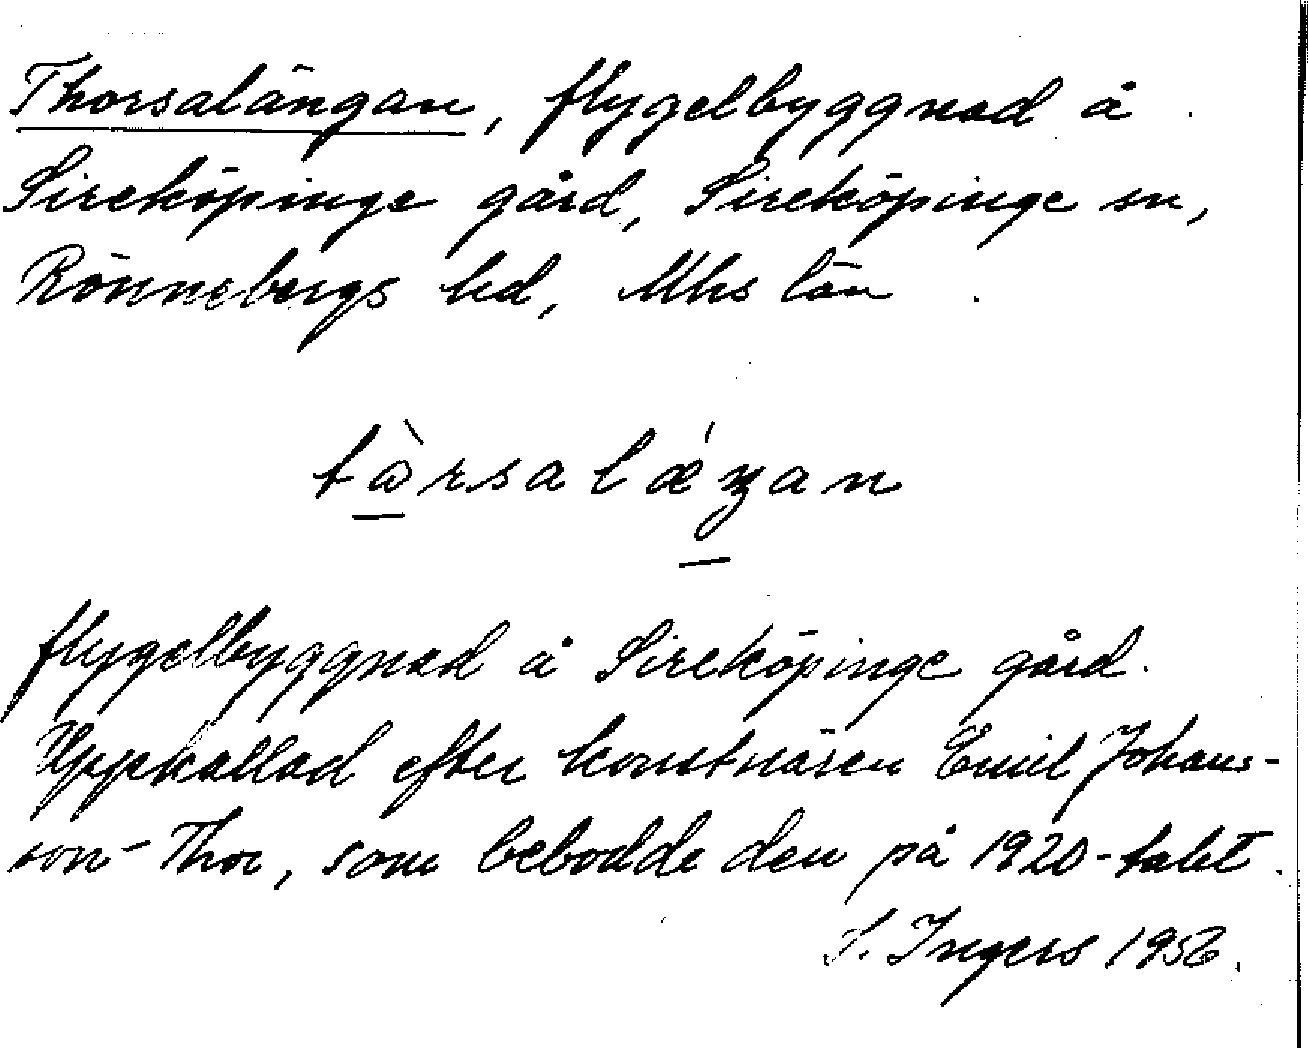 Thorsalängan, flygelbyggnad å
Sireköpinge gård, Sireköpinge sn,
Rönnebergs hd, Mhs län
tòrsalǽŋan
flygelbyggnad å Sireköpinge gård.
Uppkallad efter konstnären Emil Johans-
son-Thor, som bebodde den på 1920-talet.
I. Ingers 1956.